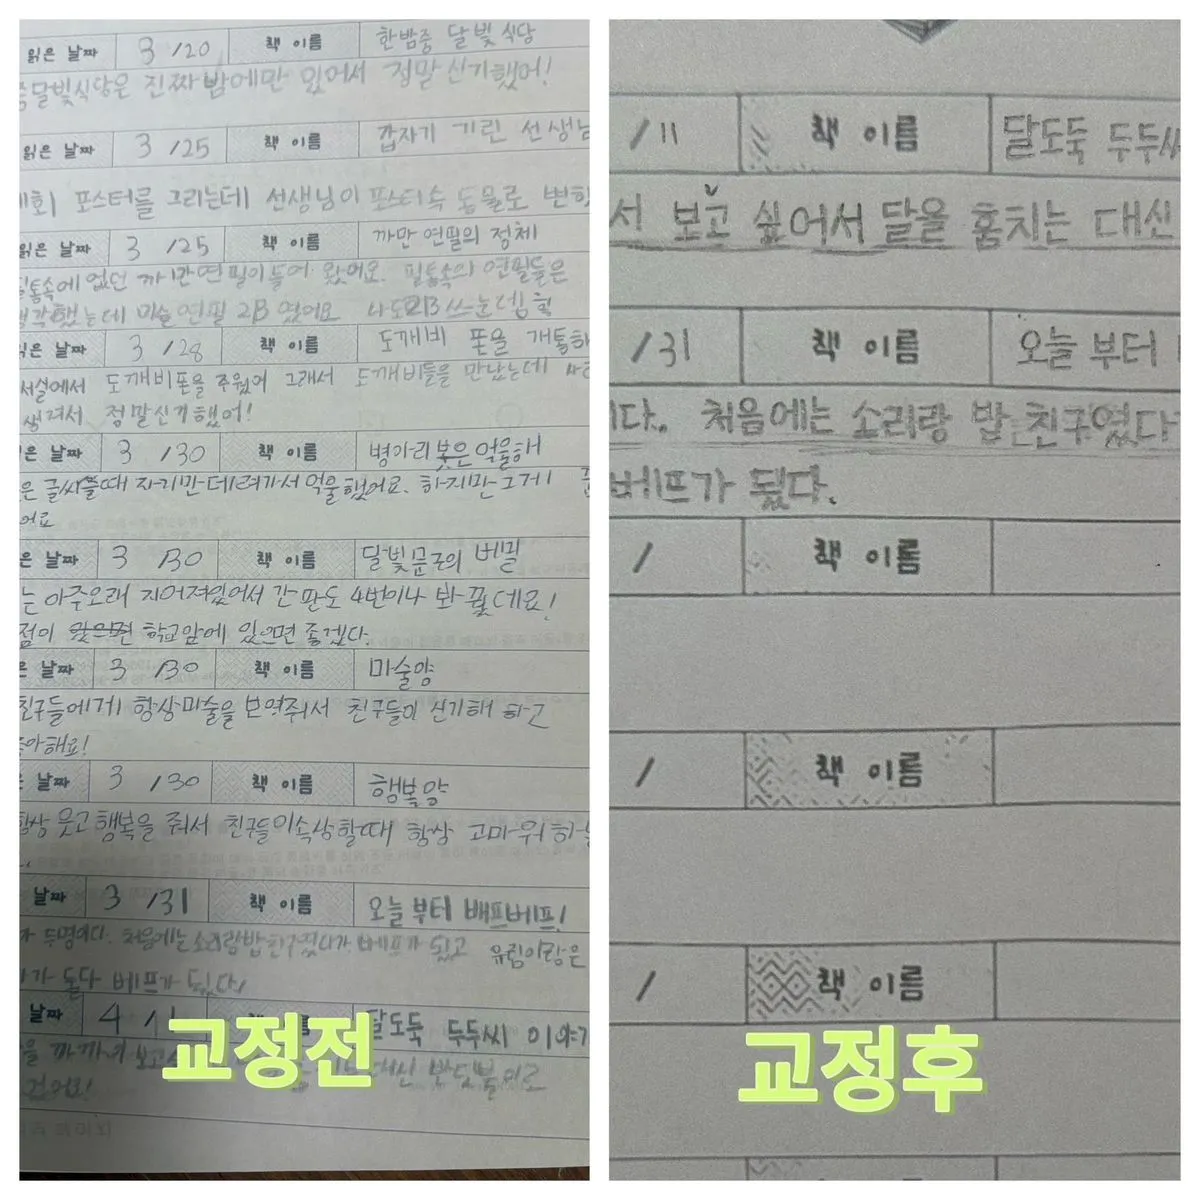 읽은 날짜 3 / 20 책 이름 한밤중 달빛 식당
달빛식당은 진짜 밤에만 있어서 정말 신기했어!
읽은 날짜 3 / 25 책 이름 갑자기 기린 선생님
포스터를 그리는데 선생님이 포스터속 동물로 변항
읽은 날짜 3 / 25 책 이름 까만 연필의 정체
필통속에 없던 까만연필이 들어 왔어요. 필통속의 연필들은
생각했는데 미술연필 2B 였어요 나도 2B 쓰는데
읽은 날짜 3 / 28 책 이름 도깨비 폰을 개통하
서실에서 도깨비폰을 주웠어 그래서 도깨비들을 만났는데
생겨서 정말신기했어!
은 날짜 3 / 30 책 이름 병아리 붓은 억울해
은 글씨쓸때 자기만 데려가서 억울했어요. 하지만 그게
어요
은 날짜 3 / 30 책 이름 달빛문구의 비밀
는 아주오래 지어져있어서 간판도 4번이나 바꿨데요!
점이 있으면 학교앞에 있으면 좋겠다.
은 날짜 3 / 30 책 이름 마술양
친구들에게 항상마술을 보여줘서 친구들이 신기해 하고
좋아해요!
은 날짜 3 / 30 책 이름 행복양
항상 웃고 행복을 줘서 친구들이속상할때 항상 고마워하
날짜 3 / 31 책 이름 오늘 부터 배프베프!
가 두명이다. 처음에는소리랑밥친구였다가 베프가 됬고 유림이랑은
가 둘다 베프가 됬다!
날짜 4 / 1 달도둑 두두씨 이야기
보고 대신
교정전
/ 11 책 이름 달도둑 두두씨
서 보고 싶어서 달을 훔치는 대신
/ 31 책 이름 오늘 부터
다. 처음에는 소리랑 밥 친구였다
베프가 됬다.
/ 책 이름
/ 책 이름
/ 책 이름
교정후